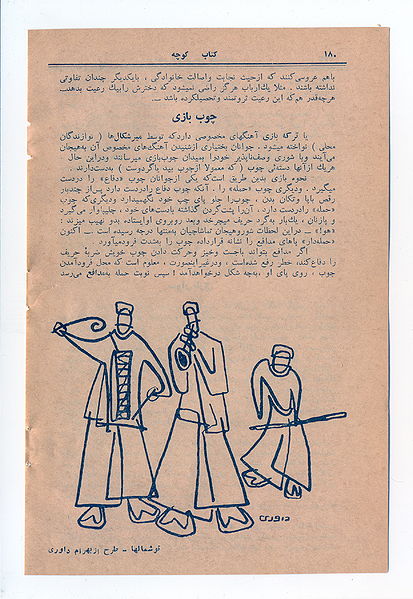 ۱۸۰ کتاب کوچه
باهم عروسی کنند که ازحیث نجابت واصالت خانوادگی ، بایکدیگر چندان تفاوتی
نداشته باشند . مثلا یك ارباب هرگز راضی نمیشود که دخترش رابیك رعیت بدهد...
هرچه قدر هم که این رعیت ثروتمند وتحصیلکرده باشد ...
چوب بازی
یا ترکه بازی آهنگهای مخصوصی دارد که توسط میرشکالها ( نوازندگان
محلی ) نواخته میشود . جوانان بختیاری ازشنیدن آهنگ‌های مخصوص آن به‌هیجان
می‌آیند وبا شوری وصف‌ناپذیر خودرا بمیدان چوب‌بازی میرسانند ودراین حال
هریك ازآنها دسته‌ئی چوب ( که معمولا ازچوب بید یاگزوست ) به‌دست‌دارند .
نحوه بازی بدین طریق است که یکی ازجوانان چوب «دفاع» را دردست
میگیرد . ودیگری چوب «حمله» را . آنکه چوب دفاع رادردست دارد پس‌از چندبار
رقص باپا وتکان بدن ، چوب‌را جلو پای چپ خود نگهمیدارد ودیگری که چوب
«حمله» رادردست دارد ، آن‌را پشت‌گردن گذاشته بادست‌های خود ، چلیپاوار می‌گیرد
و پازنان ، یك‌بار به‌گرد حریف میچرخد وبعد روبروی اوایستاده ، بدو نهیب میزند :
«هو!» ... در این لحظات شوروهیجان تماشاچیان به‌منتها درجه رسیده است ... اکنون
«حمله‌دار» پاهای مدافع را نشانه قرارداده چوب را به‌شدت فرودمیآورد .
اگر مدافع بتواند باجست وخیز وحرکت دادن چوب خویش ضربهٔ حریف
را دفاع‌کند، خطر رفع شده‌است ، ودرغیراینصورت ، معلوم است که محل فرودآمدن
چوب ، روی پای او ، به‌چه شکل درخواهدآمد ! سپس نوبت حمله به‌مدافع می‌رسد
داوری
توشمالها - طرح از بهرام داوری